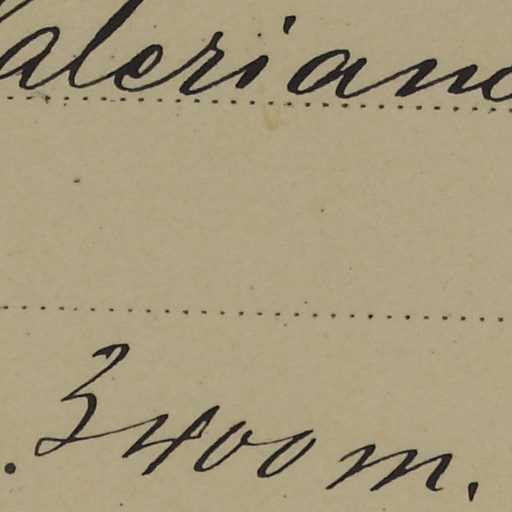 Valeriano
. 3400 m.